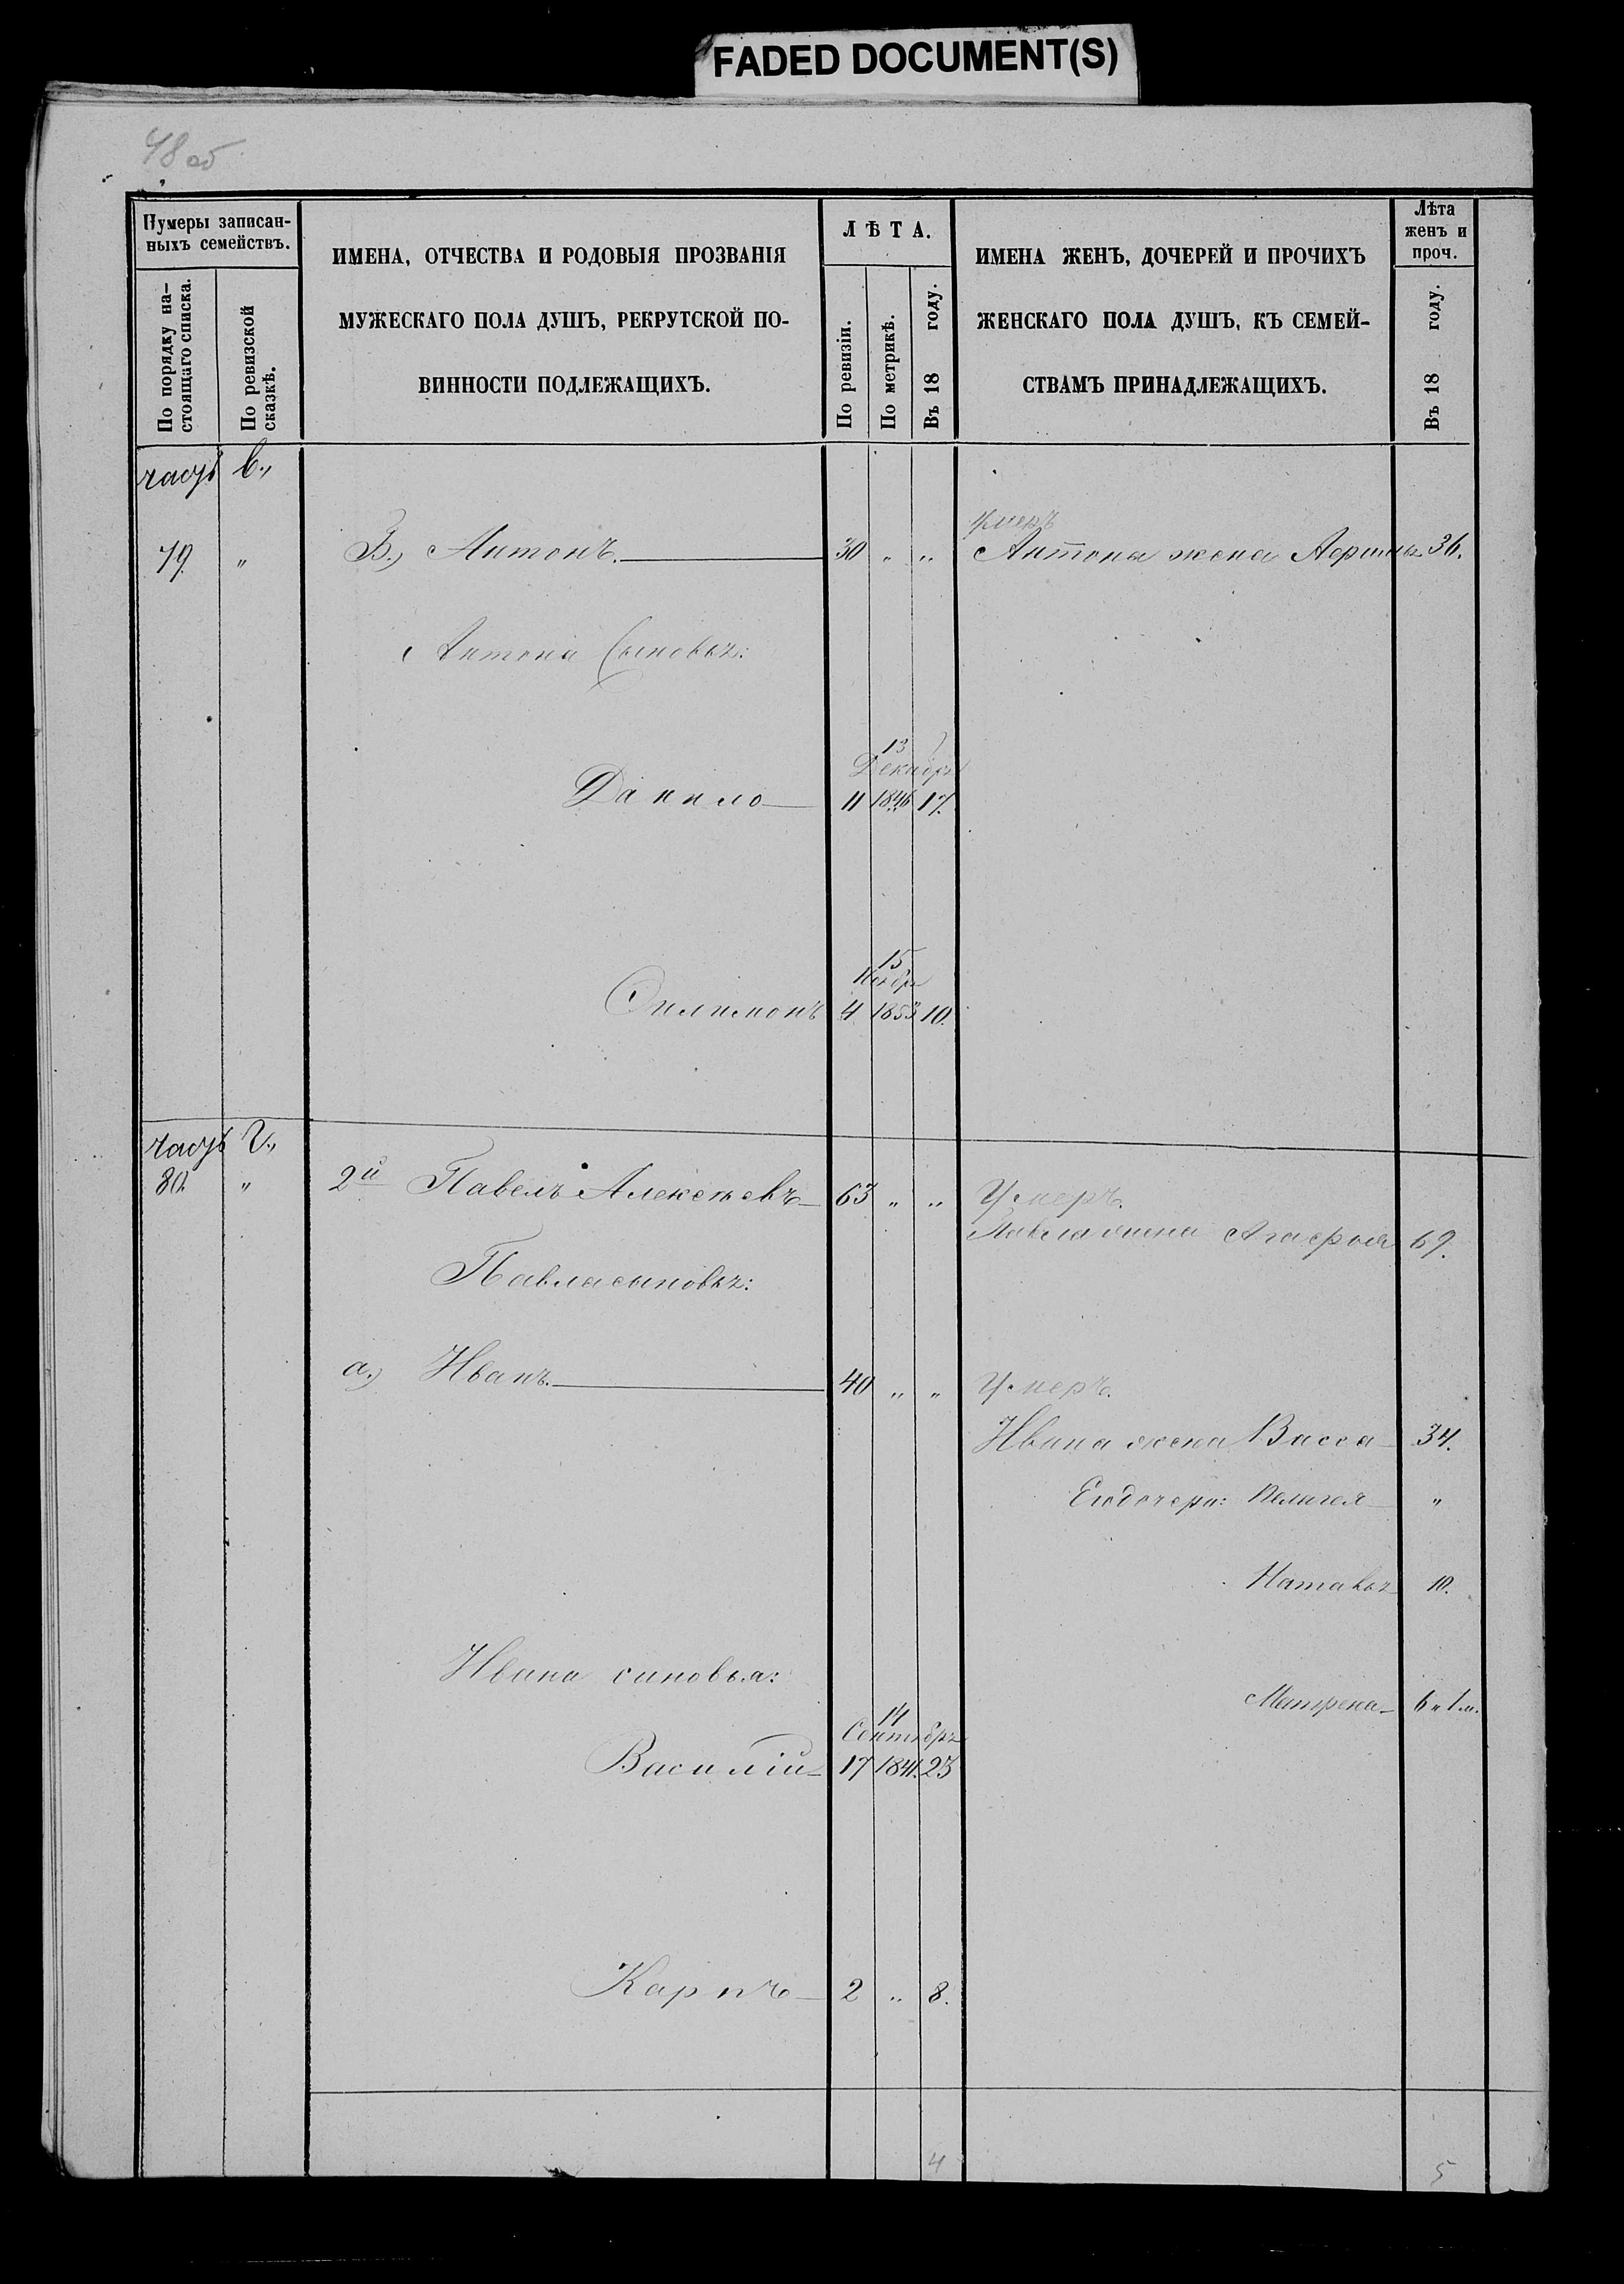 FADED DOCUMENT(S)
48 об
Нумеры записан-
ныхъ семействъ.
По порядку на-
стоящаго списка.
По ревизской
сказкѣ.
ИМЕНА, ОТЧЕСТВА И РОДОВЫЯ ПРОЗВАНІЯ
МУЖЕСКАГО ПОЛА ДУШЪ, РЕКРУТСКОЙ ПО-
ВИННОСТИ ПОДЛЕЖАЩИХЪ.
ЛѢТА.
По ревизіи.
По метрикѣ.
Въ 18 году.
ИМЕНА ЖЕНЪ, ДОЧЕРЕЙ И ПРОЧИХЪ
ЖЕНСКАГО ПОЛА ДУШЪ, КЪ СЕМЕЙ-
СТВАМЪ ПРИНАДЛЕЖАЩИХЪ.
Лѣта
женъ и
проч.
Въ 18 году.
часть в.,
умеръ
79 „ В.) Антонъ. 30 „ „ Антона жена 36.
Антона Сыновья:
13
Декабря
Данило 11 1846 17.
15
Ноября
Филимонъ 4 1853 10.
часть г.,
80. „ 2й Павелъ Алексѣевъ 63 „ „ Умеръ.
Павла жена Агафья 69.
Павла сыновья:
а.) Иванъ. 40 „ „ Умеръ.
Ивана жена Васса 34.
Его дочери: Пелагея „
Наталья 10.
Ивана сыновья:
Матрена 6 и 1 м.
14
Сентября
Василій 17 1841. 23
Карпъ 2 „ 8.
4 5